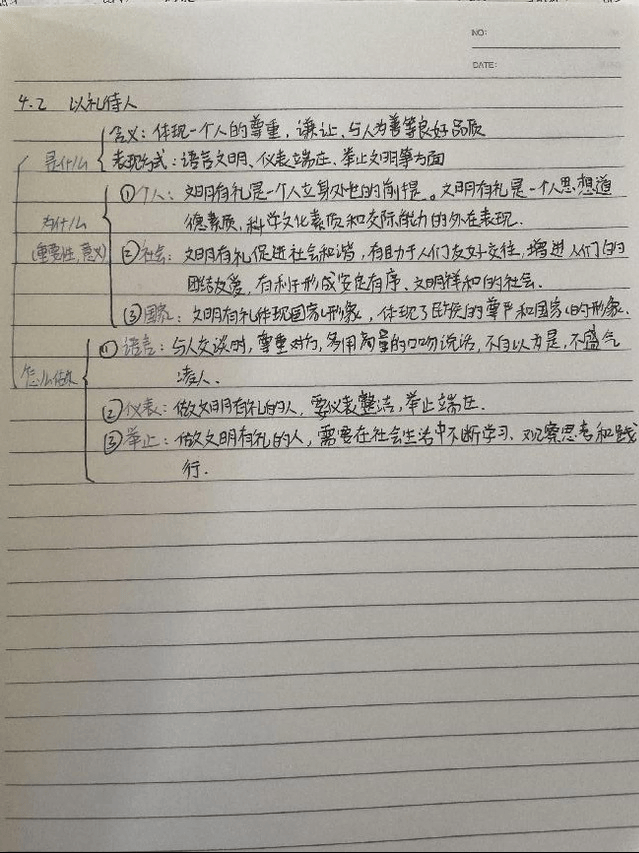 NO:
DATE:
4.2 以礼待人
含义：体现一个人的尊重、谦让、与人为善等良好品质
是什么
表现形式：语言文明、仪表端庄、举止文明等方面
①个人：文明有礼是一个人立身处世的前提。文明有礼是一个人思想道
为什么
德素质、科学文化素质和交际能力的外在表现.
(重要性、意义)
②社会：文明有礼促进社会和谐，有助于人们友好交往，增进人们的
团结友爱，有利于形成安定有序、文明祥和的社会.
③国家：文明有礼体现国家形象，体现了民族的尊严和国家的形象.
①语言：与人交谈时，尊重对方，多用商量的口吻说话，不自以为是，不盛气
怎么做
凌人.
②仪表：做文明有礼的人，要仪表整洁，举止端庄.
③举止：做文明有礼的人，需要在社会生活中不断学习、观察思考和践
行.